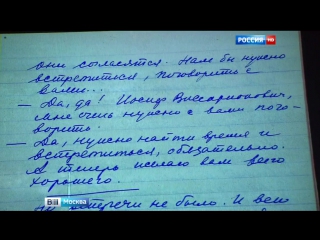 РОССИЯ HD
они согласятся. Нам бы нужно
встретиться, поговорить с
вами...
— Да, да! Иосиф Виссарионович,
мне очень нужно с вами пого-
ворить.
— Да, нужно найти время и
встретиться, обязательно.
А теперь желаю вам всего
хорошего.
встречи не было. И всю
ВЕСТИ Москва